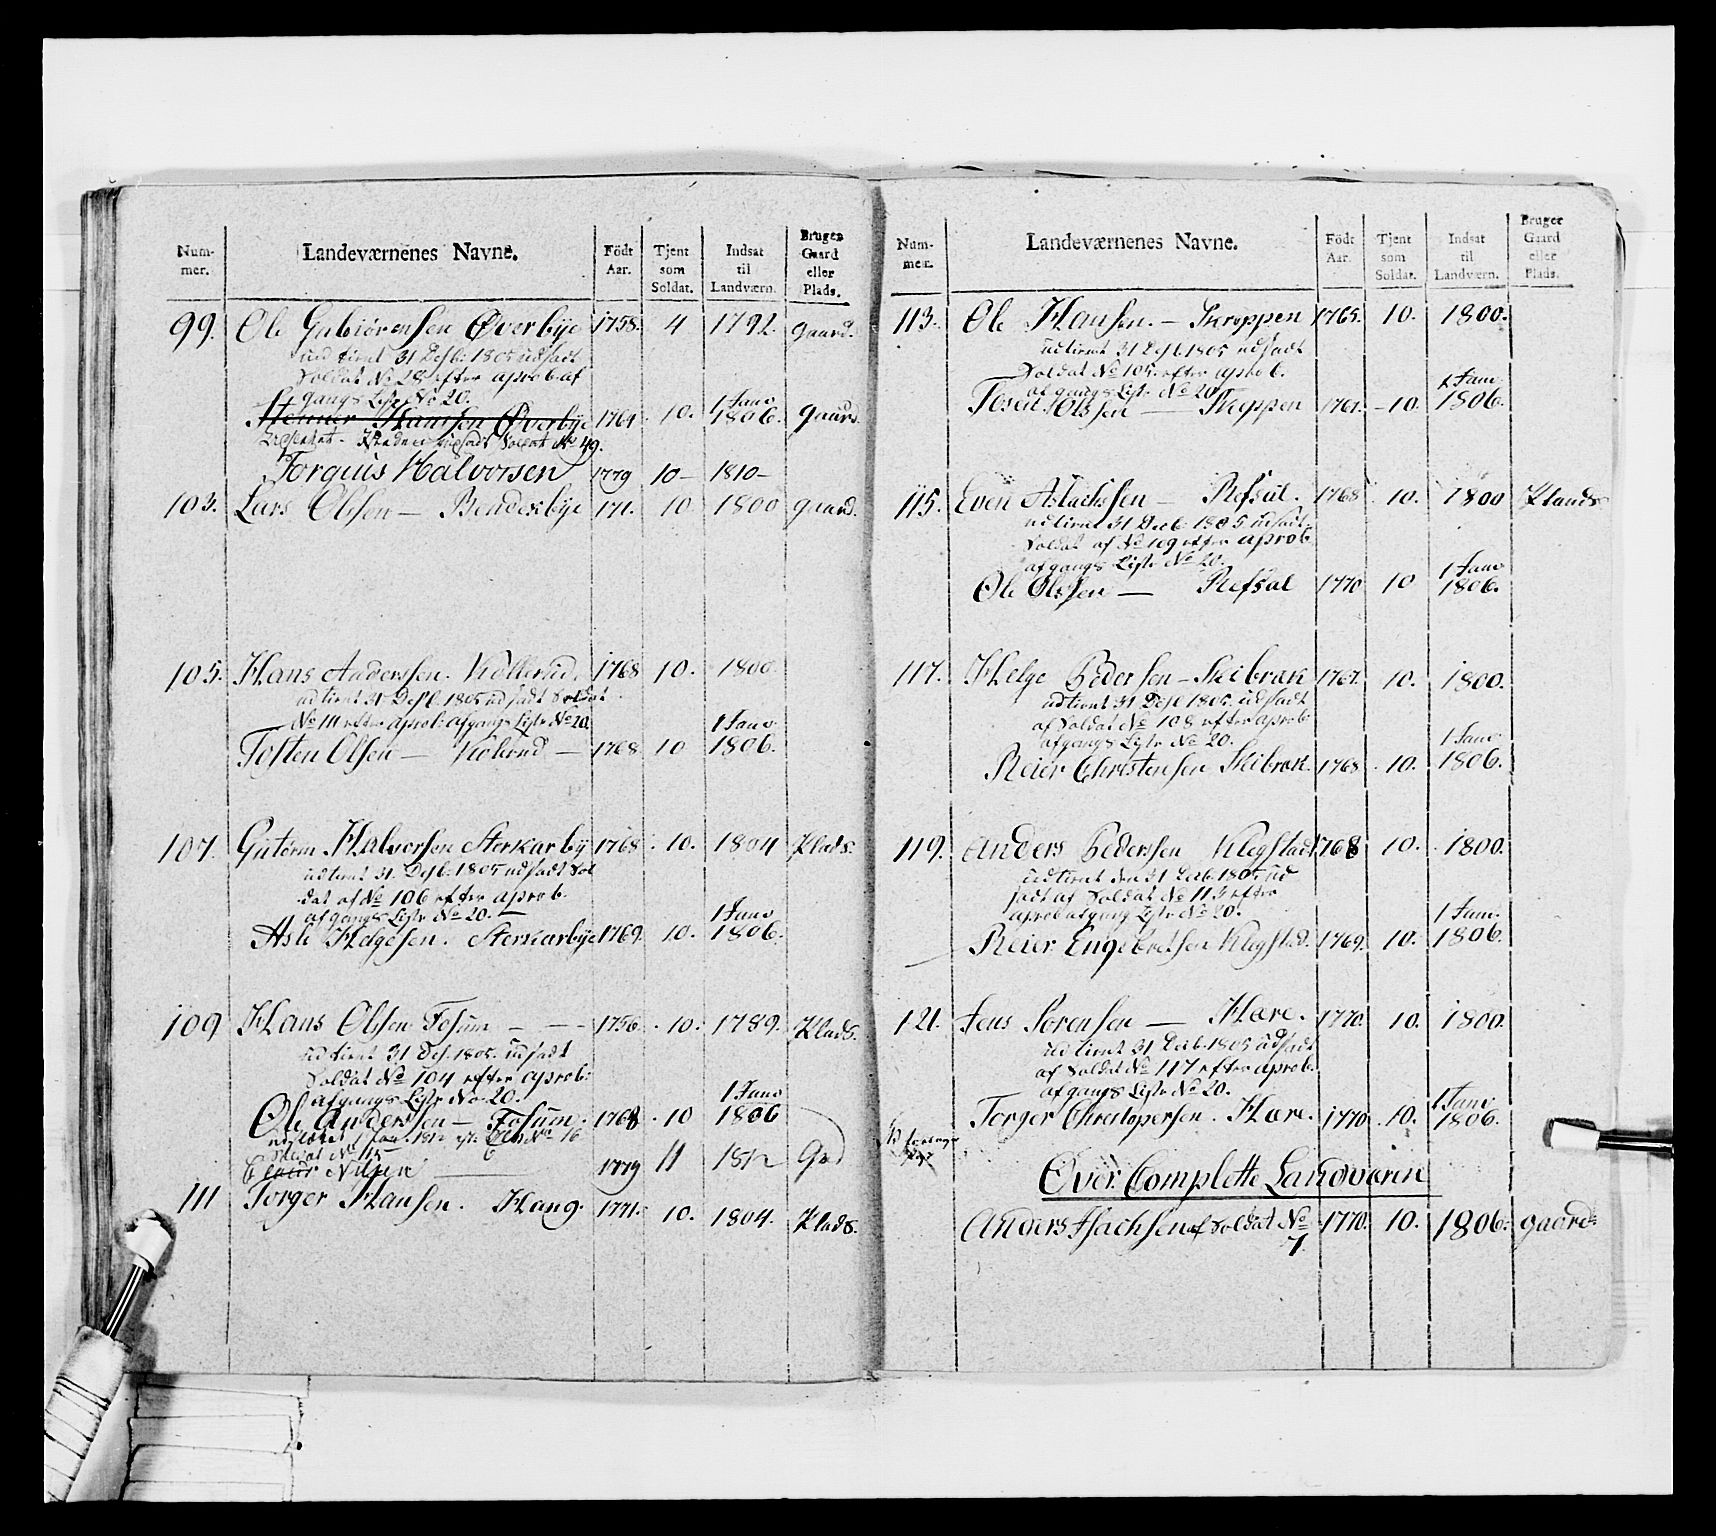 Num-
mer.
Landeværnenes Navne.
Födt
Aar.
Tjent
som
Soldat.
Indsat
til
Landværn.
Bruger
Gaard
eller
Plads.
99. Ole Gulbrörensen Øverbye 1758. 4 1792. gaard.
udtient 31 Desb: 1805 udsadt
Soldat No 28 efter aprob. af
gangs Liste No 20.
1 Janv
Steener Hansen Øverbye 1764 10. 1806. gaard.
udsadt Soldat No 49.
Torguus Halvorsen 1779 10 - 1810 -
103. Lars Olssen — Benderbye 171. 10 1800 gaard.
105. Hans Anderssen. Kollerud. 1768 10. 1800.
udtient 31 Desb. 1805 udsadt Soldat
No 111 efter aprob: afgangs Liste No 20.
1 Janv
Tosten Olsen — Kolerud — 1768 10 1806.
107. Gutorm Halvorsen Sterkarby 1768 10. 1804 Klads.
udtient 31. Desb. 1805 udsadt Sol
dat af No 106 efter aprob.
afgangs Liste No 20. —
1 Janv
Asle Helgesen. Sterkarbye 1769. 10. 1806.
109 Hans Olssen Fosum — — - 1756. 10. 1789. Klads.
udtient 31 Des. 1805. udsadt
Soldat No 104 efter aprob:
afgangs Liste No. 20.
1 Janv
Ole Anderssen — Fosum. 1768 10 1806
Nilsen 1779 11 1812 Grd
111 Torger Hansen. Haug. 1771. 10. 1804. Klads.
Num-
mer.
Landeværnenes Navne.
Födt
Aar.
Tjent
som
Soldat.
Indsat
til
Landværn.
Bruger
Gaard
eller
Plads.
113. Ole Hansen. — Skroppen 1765. 10. 1800.
udtient 31 Desb. 1805 udsadt
Soldat No 105. efter aprob.
afgangs Liste No 20.
1 Janv
Olssen — Skeppen 1761. 10. 1806.
115. Even Aslachsen — Refsal. 1768 10. 1800 Klands
udtient 31 Decb. 1805 udsadt
Soldat af No 109 efter aprob.
afgangs Liste No 20.
1 Janv
Ole Olssen — Refsal 1770 10 1806.
117. Helge Pedersen — Skibrak 1767. 10. 1800.
udtient 31 Desb 1805. udsadt
af Soldat No 108 efter aprob.
afgangs Liste No 20.
1 Janv
Reier Christensen Skibrak 1768 10. 1806.
119. Anders Pederssen Klegstad 1768 10. 1800.
udtient den 31 Decb. 1805. ud
sadt af Soldat No 113 efter
aprob afgang Liste No 20.
1 Janv.
Reier Engebretsen Klegstad. 1769. 10. 1806.
121. Jens Sörensen — Hære. 1770. 10. 1800.
udtient 31 Decb. 1805 udsadt
af Soldat No 117 efter aprob.
afgangs Liste No 20.
1 Janv
Torger Christopersen. Hære. 1770 10. 1806.
Over Complette Landværn
Anders Isachsen af Soldat No 1770. 10. 1806. gaard
7.